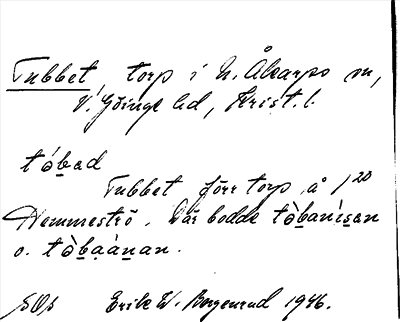 Tubbet, torp i N. Åkarps sn,
V. Göinge hd, Krist. l.
tòbad
Tubbet förr torp å 1/20
Hemmeströ. Där bodde tòbanìsan
o. tòbaànan.
SOs Erik W. Bergenrud 1946.